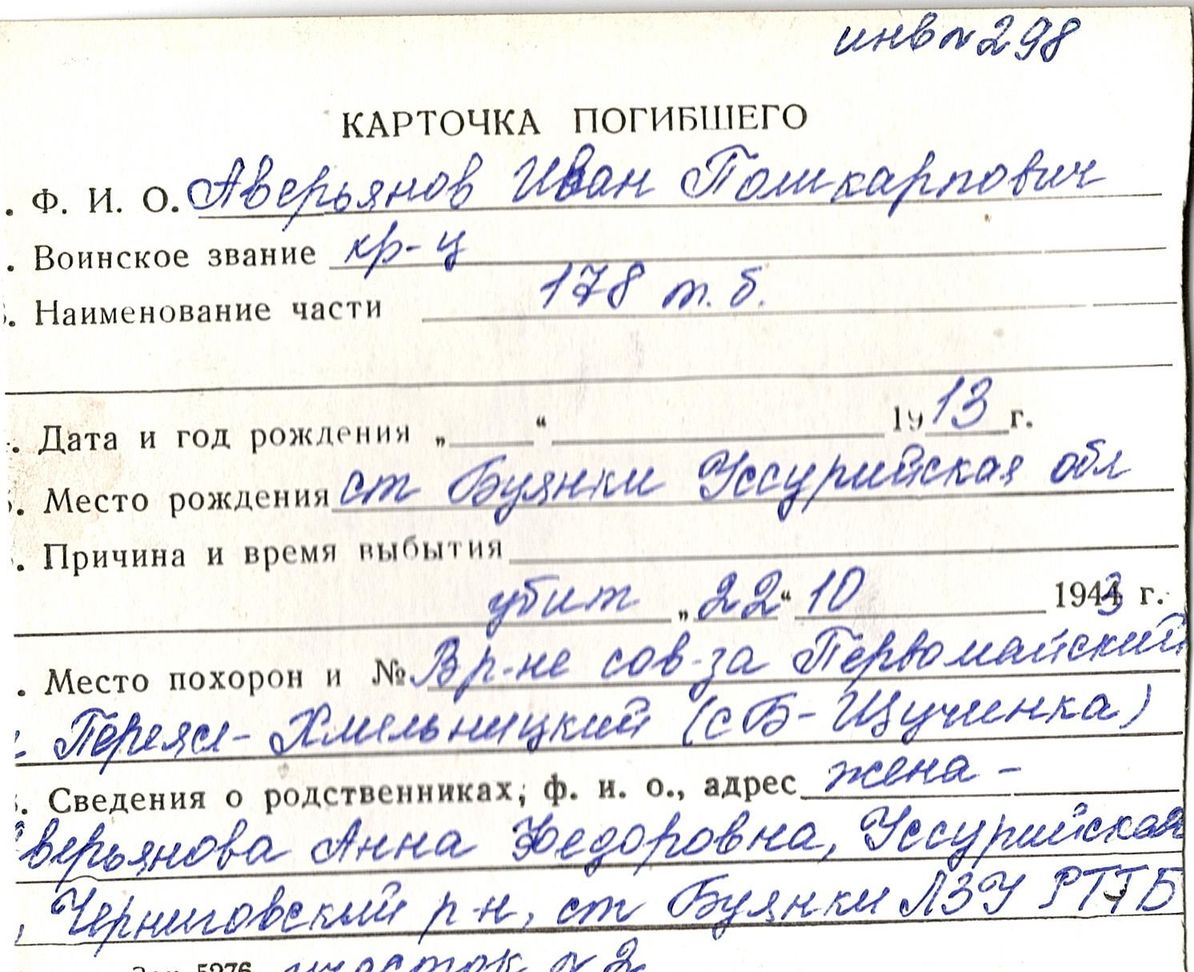 инв № 298
КАРТОЧКА ПОГИБШЕГО
. Ф. И. О. Аверьянов Иван Поликарпович
. Воинское звание кр-ц
. Наименование части 178 т. б.
. Дата и год рождения „ “ 1913 г.
. Место рождения ст Буянки Уссурийская обл
. Причина и время выбытия
убит „22“ 10 1943 г.
. Место похорон и № В р-не сов-за Первомайский
Переясл-Хмельницкий (с Б-Щучинка)
. Сведения о родственниках, ф. и. о., адрес жена -
Аверьянова Анна Федоровна, Уссурийская
, Черниговский р-н, ст Буянки ЛЗУ РТТБ
Зак. 5276 участок № 2